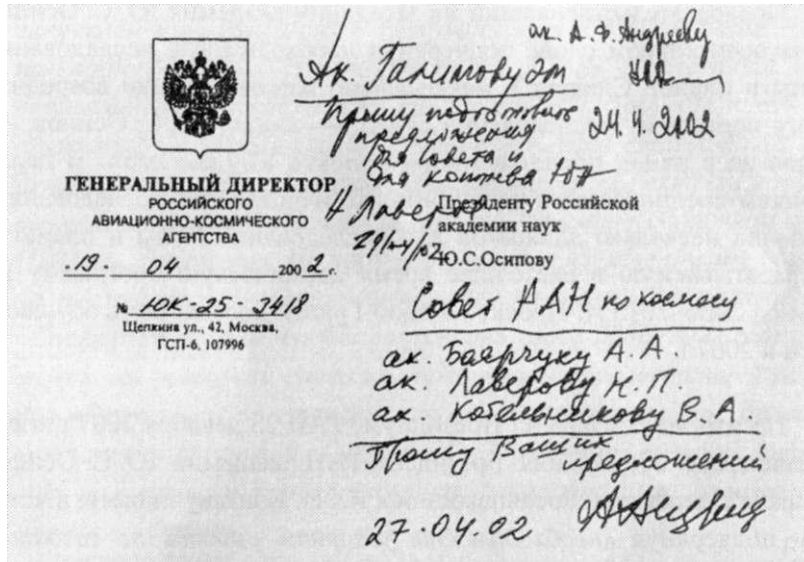 ак. А. Ф. Андрееву
Ак. Галимову Эм
24.4.2002
Прошу подготовить
предложения
для совета и
для коптева ЮН
Н Лаверов
29/IV/02
ГЕНЕРАЛЬНЫЙ ДИРЕКТОР
РОССИЙСКОГО
АВИАЦИОННО-КОСМИЧЕСКОГО
АГЕНТСТВА
19. 04 2002 г.
№ ЮК-25-2418
Щепкина ул., 42, Москва,
ГСП-6, 107996
Президенту Российской
академии наук
Ю.С.Осипову
Совет РАН по космосу
ак. Боярчуку А. А
ак. Лаверову Н. П.
ак. Котельникову В. А.
Прошу Ваших
предложений
27.04.02